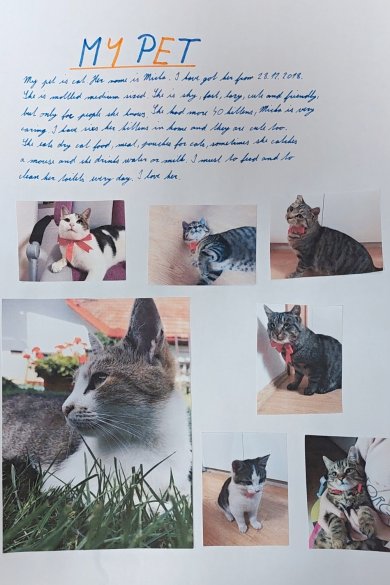 MY PET
My pet is cat. Her name is Micka. I have got her from 28.12.2018.
She is mottled medium sized. She is shy, fast, lazy, cute and friendly,
but only for people she knows. She had more 40 kittens, Micka is very
caring. I have her kittens in home and they are cute too.
She eats dry cat food, meat, pouches for cats, sometimes she catches
a mouse and she drinks water or milk. I must to feed and to
clean her toilets every day. I love her